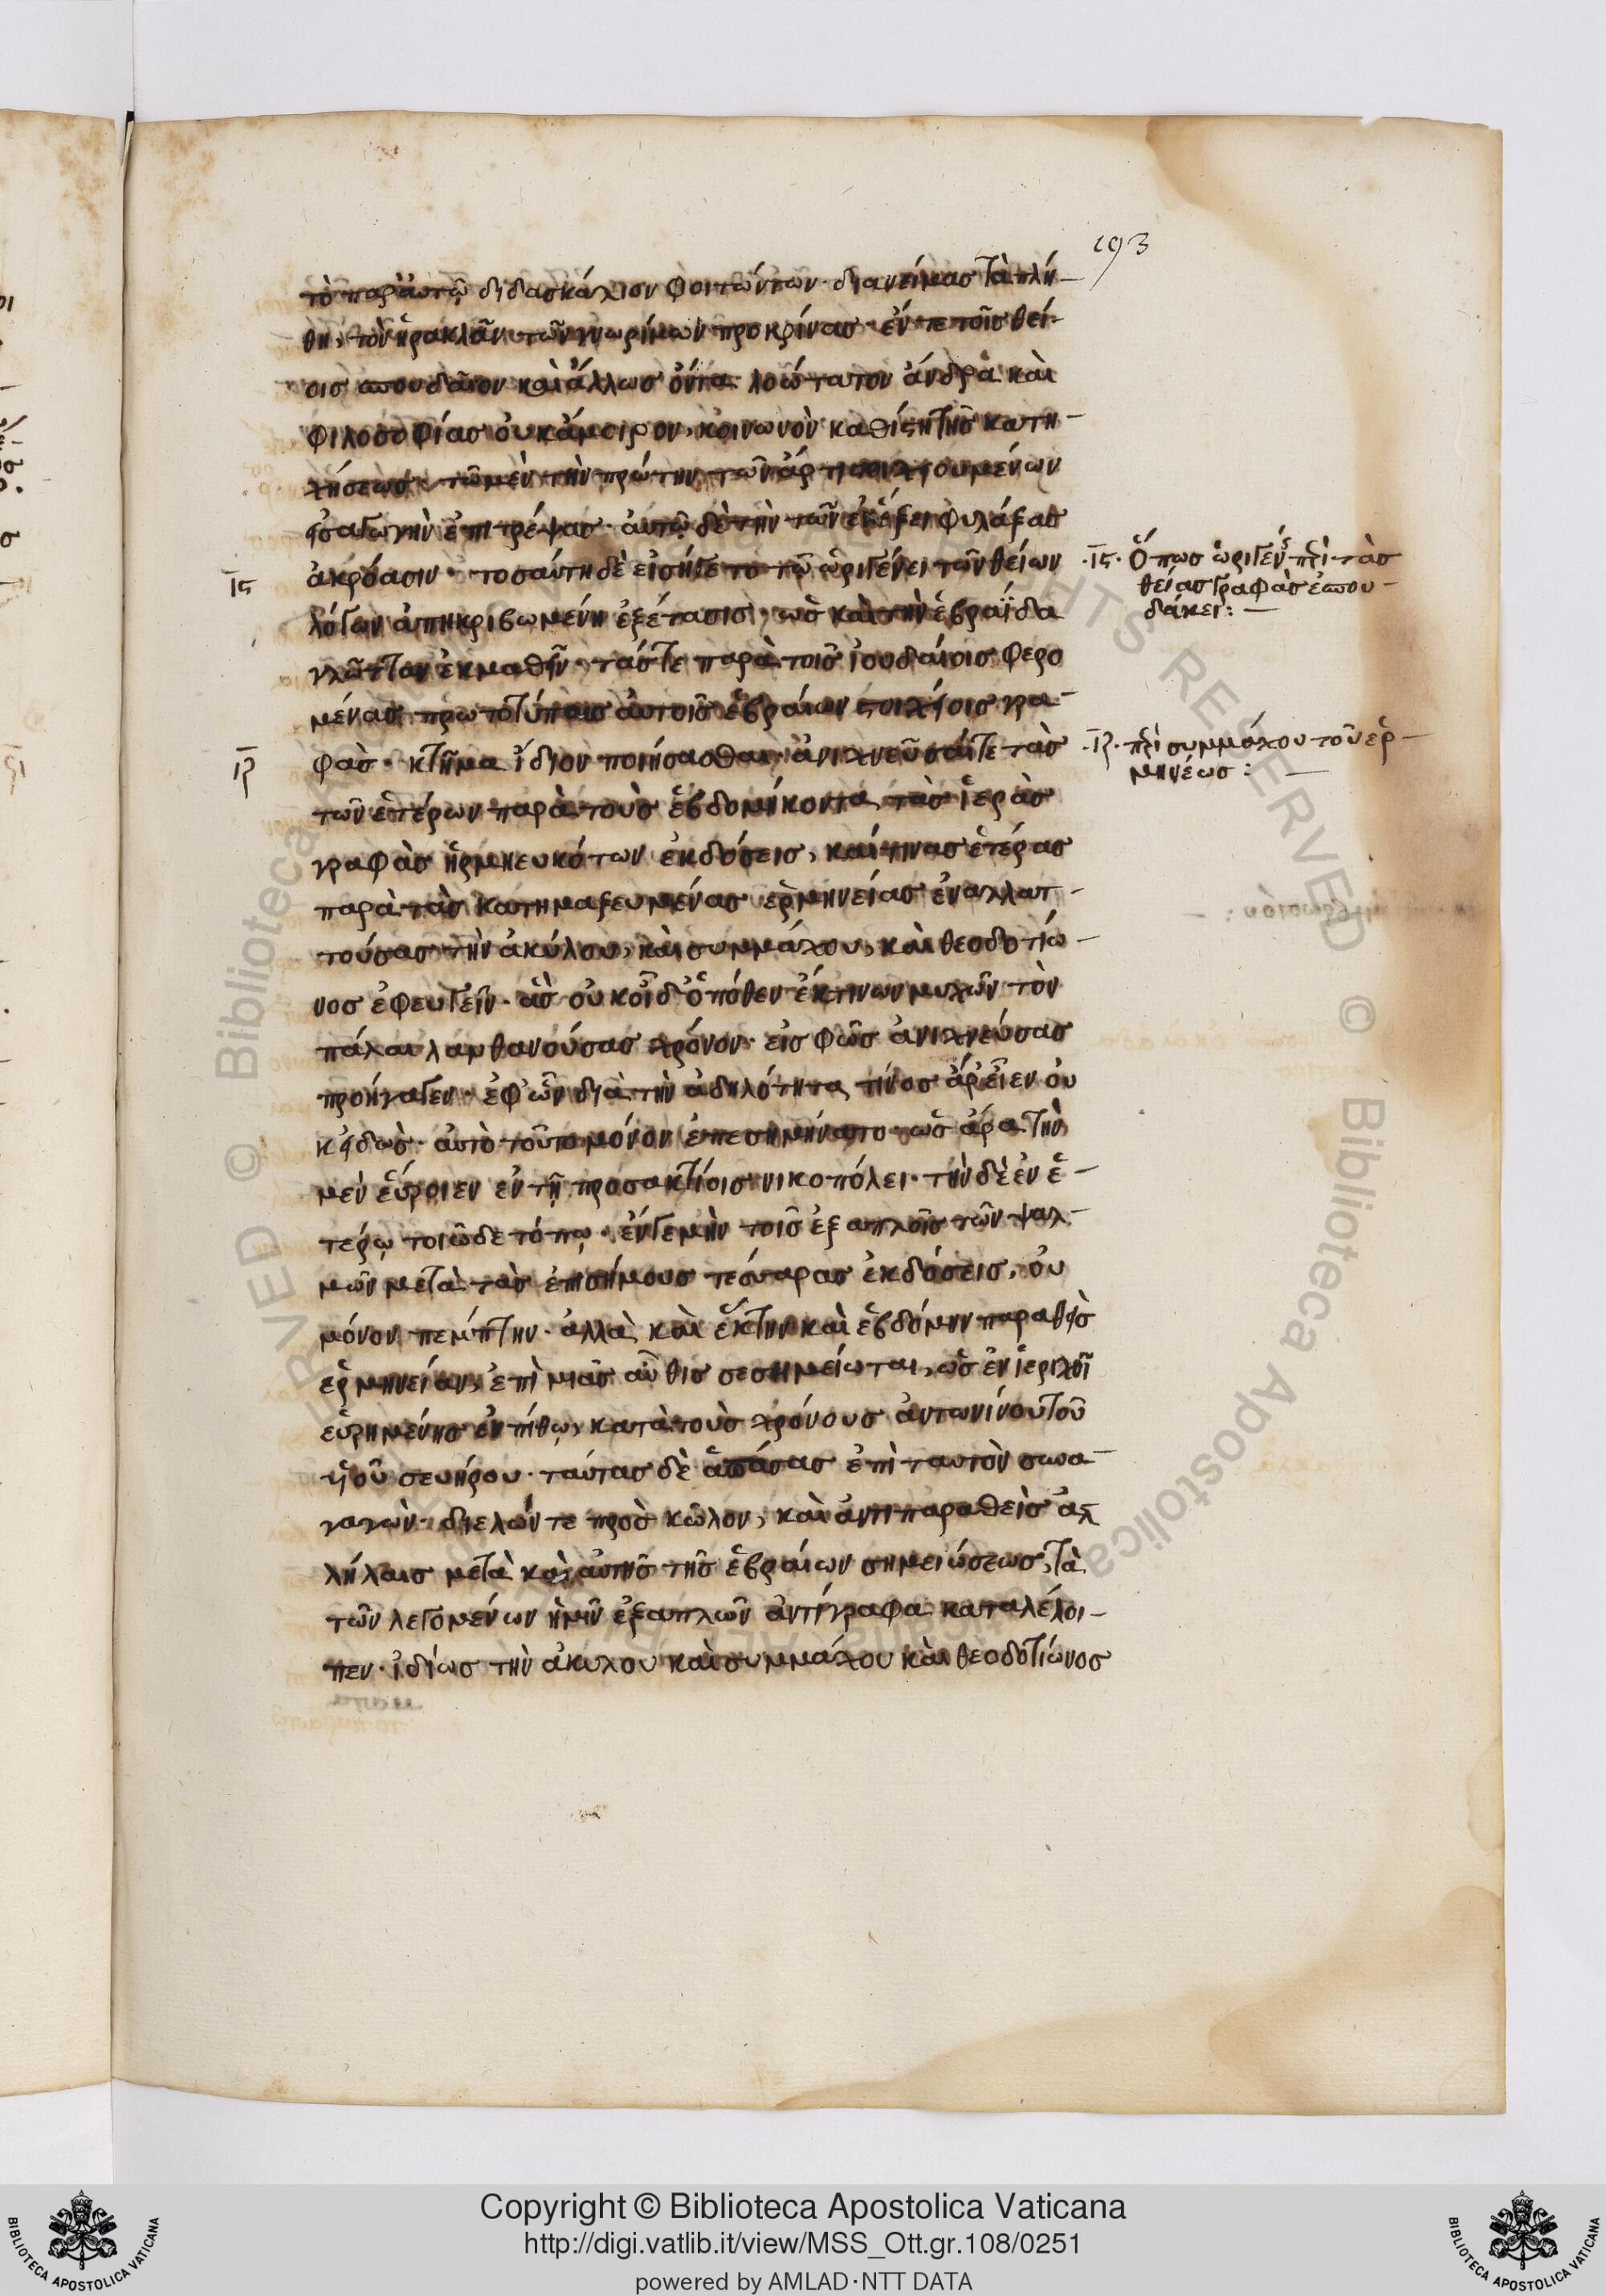 193
τὸ παρ' αὐτῶ διδασκάλιον φοιτώντων· διανείμας τὰ πλή-
θη, τὸν ἡρακλᾶν τῶν γνωρίμων προκρίνας· ἔν τε τοῖς θεί-
οις σπουδαῖον καὶ ἄλλως ὄντα λογιώτατον ἄνδρα καὶ
φιλοσοφίας οὐκ ἄμοιρον, κοινωνὸν καθίστη τῆς κατη-
χήσεως· τῶ μὲν τὴν πρώτην τῶν ἄρτι στοιχειουμένων
εἰσαγωγὴν ἐπιτρέψας· αὐτῶ δὲ τὴν τῶν ἐν ἕξει φυλάξας
ἀκρόασιν· τοσαύτη δὲ εἰσήγετο τῶ ὠριγένει τῶν θείων
ις
·ις· Ὅπως ὠριγένης περὶ τὰς
θείας γραφὰς ἐσπου-
δάκει:
λόγων ἀπηκριβωμένη ἐξέτασις, ὡς καὶ τὴν ἑβραΐδα
γλῶτταν ἐκμαθεῖν· τάς τε παρὰ τοῖς ἰουδαίοις φερο
μένας πρωτοτύποις αὐτοῖς ἑβραίων στοιχείοις γρα-
φὰς· κτῆμα ἴδιον ποιήσασθαι· ἀνιχνεῦσαί τε τὰς
ιζ
·ιζ· περὶ συμμάχου τοῦ ἑρ-
μηνέως:
τῶν ἑτέρων παρὰ τοὺς ἑβδομήκοντα τὰς ἱερὰς
γραφὰς ἡρμηνευκότων ἐκδόσεις, καί τινας ἑτέρας
παρὰ τὰς κατημαξευμένας ἑρμηνείας ἐναλλατ-
τούσας τὴν ἀκύλου, καὶ συμμάχου, καὶ θεοδοτίω-
νος ἐφευρεῖν· ἃς οὐκ οἶδ' ὁπόθεν ἔκ τινων μυχῶν τὸν
πάλαι λανθανούσας χρόνον· εἰς φῶς ἀνιχνεύσας
προήγαγεν· ἐφ' ὧν διὰ τὴν ἀδηλότητα, τίνος ἄρ' εἶεν οὐ
κ εἰδὼς· αὐτὸ τοῦτο μόνον ἐπεσημήνατο· ὡς ἄρα τὴν
μὲν εὕροιεν ἐν τῇ προσακτίοις νικοπόλει· τὴν δὲ ἐν ἑ-
τέρῳ τοιῶδε τόπῳ· ἔν γε μὴν τοῖς ἑξαπλοῖς τῶν ψαλ-
μῶν μετὰ τὰς ἐπισήμους τέσσαρας ἐκδόσεις, οὐ
μόνον πέμπτην· ἀλλὰ καὶ ἕκτην καὶ ἑβδόμην παραθεὶς
ἑρμηνείαν, ἐπὶ μιᾶς αὖθις σεσημείωται, ὡς ἐν ἱεριχοῖ
εὑρημένης ἐν πίθῳ, κατὰ τοὺς χρόνους ἀντωνίνου τοῦ
υἱοῦ σευήρου· ταύτας δὲ ἁπάσας ἐπὶ ταυτὸν συνα-
γαγὼν· διελών τε πρὸς κῶλον, καὶ ἀντιπαραθεὶς ἀλ
λήλαις μετὰ καὶ αὐτῆς τῆς ἑβραίων σημειώσεως, τὰ
τῶν λεγομένων ἡμῖν ἑξαπλῶν ἀντίγραφα καταλέλοι-
πεν· ἰδίως τὴν ἀκύλου καὶ συμμάχου καὶ θεοδοτίωνος
Copyright © Biblioteca Apostolica Vaticana
http://digi.vatlib.it/view/MSS_Ott.gr.108/0251
powered by AMLAD·NTT DATA